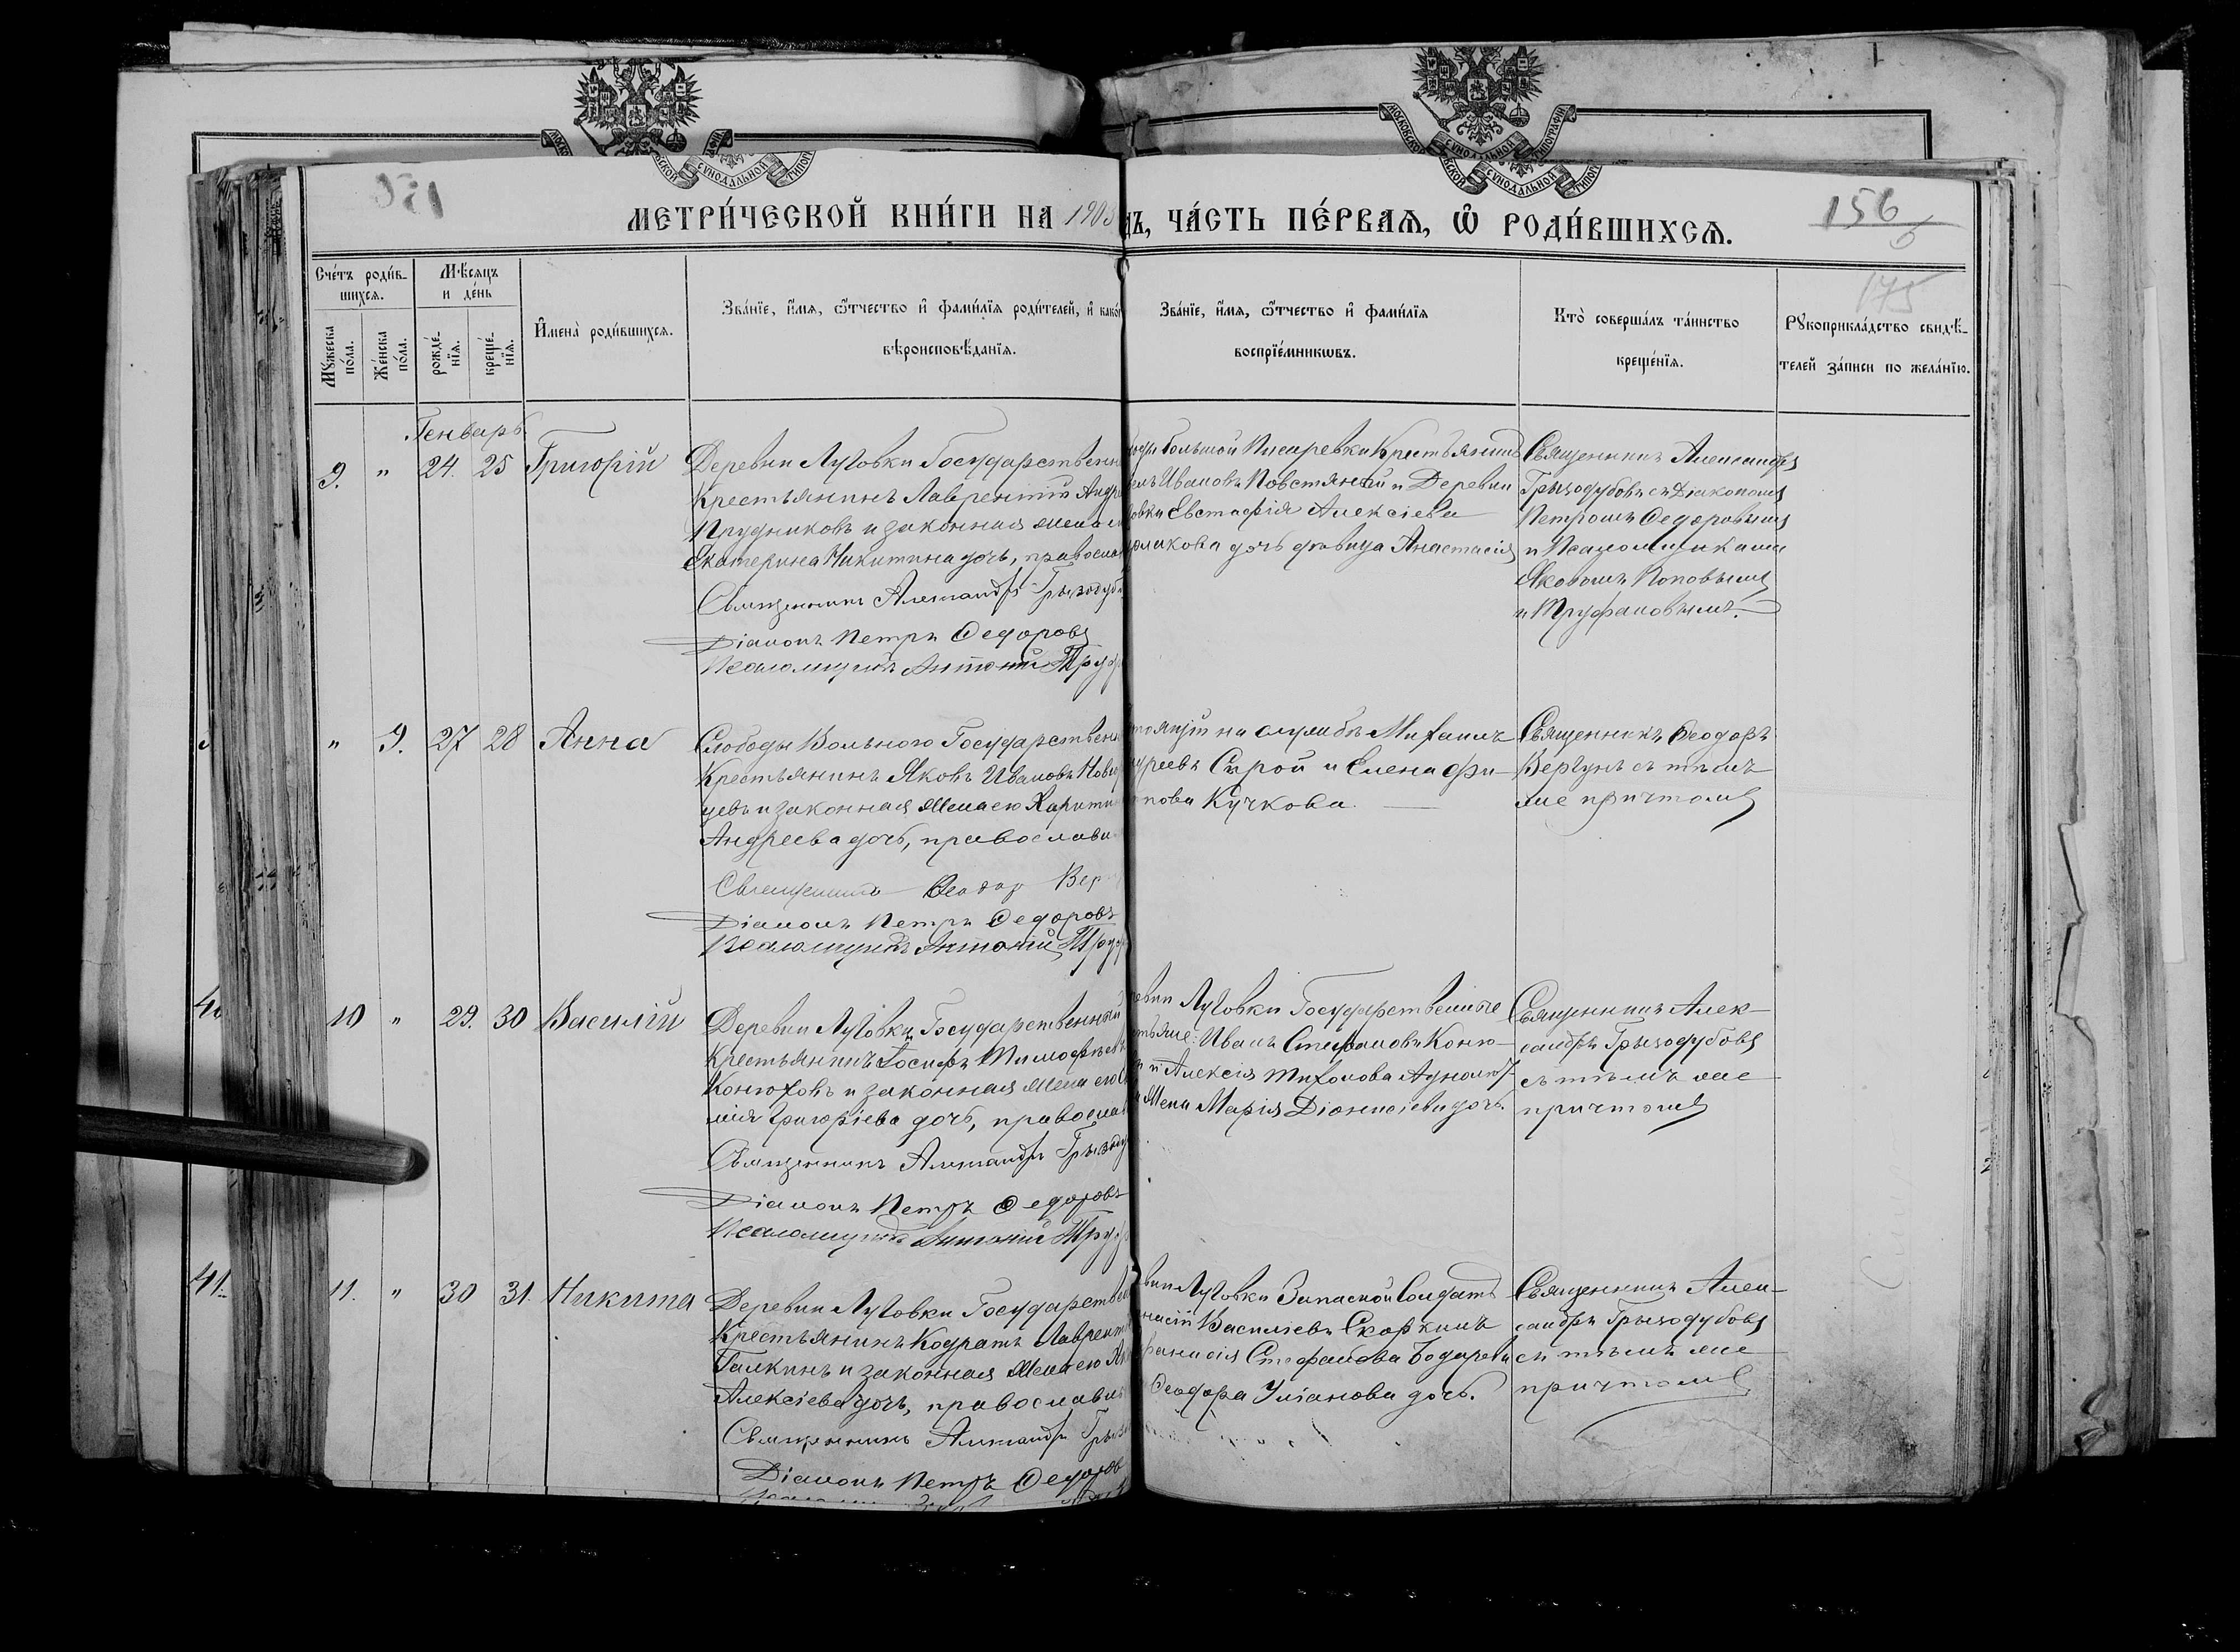 МОСКОВСКОЙ СѴНОДАЛЬНОЙ ТИПОГРАФІИ
МЕТРИ́ЧЕСКОЙ КНИ́ГИ НА 1903
ДЪ, ЧА́СТЬ ПЕ́РВАѦ, Ѡ РОДИ́ВШИХСѦ.
156
175
Сче́тъ роди́в-
шихсѧ.
Мѣ́сяцъ
и де́нь
Мꙋ́жеска
по́ла.
Же́нска
по́ла.
рожде́-
нїѧ.
креще́-
нїѧ.
И҆мена̀ роди́вшихсѧ.
Зва́нїе, и҆́мѧ, ѻ҆́тчество и҆ фами́лїѧ роди́телей, и҆ како́
вѣроисповѣ́данїѧ.
Зва́нїе, и҆́мѧ, ѻ҆́тчество и҆ фами́лїѧ
воспрїе́мникѡвъ.
Кто̀ соверша́лъ та́инство
креще́нїѧ.
Рꙋкоприкла́дство свидѣ́-
телей за́писи по жела́нїю.
Генварь
9. " 24. 25 Григорій
Деревни Луговки Государственн
Крестьянинъ Лаврентій Андре
Прудниковъ и законная жена е
Екатерина Никитина дочь, правосла
Священникъ Александръ Грызодуб
Діаконъ Петръ Ѳедоровъ
Псаломщикъ Антоній Труф
большой Писаревки Крестьянинъ
Ивановъ Повстяный и Деревни
овки Евстафія Алексіева
дочь дѣвица Анастасія
Священникъ Александръ
Грызодубовъ съ Діакономъ
Петромъ Ѳедоровымъ
и Псаломщиками
Яковомъ Поповымъ
и Труфановымъ.
" 9. 27 28 Анна
Слободы Вольного Государствен
Крестьянинъ Яковъ Ивановъ
цевъ и законная жена его Харити
Андреева дочь, православн
Священникъ Ѳеодоръ Вер
Діаконъ Петръ Ѳедоровъ
Псаломщикъ Антоній Труф
тоящій на службѣ Михаилъ
дреевъ Сѣрой и Елена Фи-
пова Кучкова.
Священникъ Ѳеодоръ
Вергунъ съ тѣмъ
же причтомъ
10 " 29. 30 Василій
Деревни Луговки Государственный
Крестьянинъ Іосифъ Тимофѣевъ
Конюховъ и законная жена его
мія Григоріева дочь, правосла
Священникъ Александръ Грызоду
Діаконъ Петръ Ѳедоровъ
Псаломщикъ Антоній Труф
евни Луговки Государственные
стьяне: Иванъ Стефановъ Коню-
и Алексія Тихонова
жена Марія Діонисіева дочь.
Священникъ Алек-
сандръ Грызодубовъ
съ тѣмъ же
причтомъ
40
41.
11. " 30 31. Никита
Деревни Луговки Государстве
Крестьянинъ Кодратъ Лаврент
Галкинъ и законная жена его
Алексіева дочь, православн
Священникъ Александръ Грызо
Діаконъ Петръ Ѳедоров
вни Луговки Запасной Солдатъ
насій Василіевъ Скоркинъ
Стефанова Бодарева
Ѳеодора Уліанова дочь.
Священникъ Алек-
сандръ Грызодубовъ
съ тѣмъ же
причтомъ